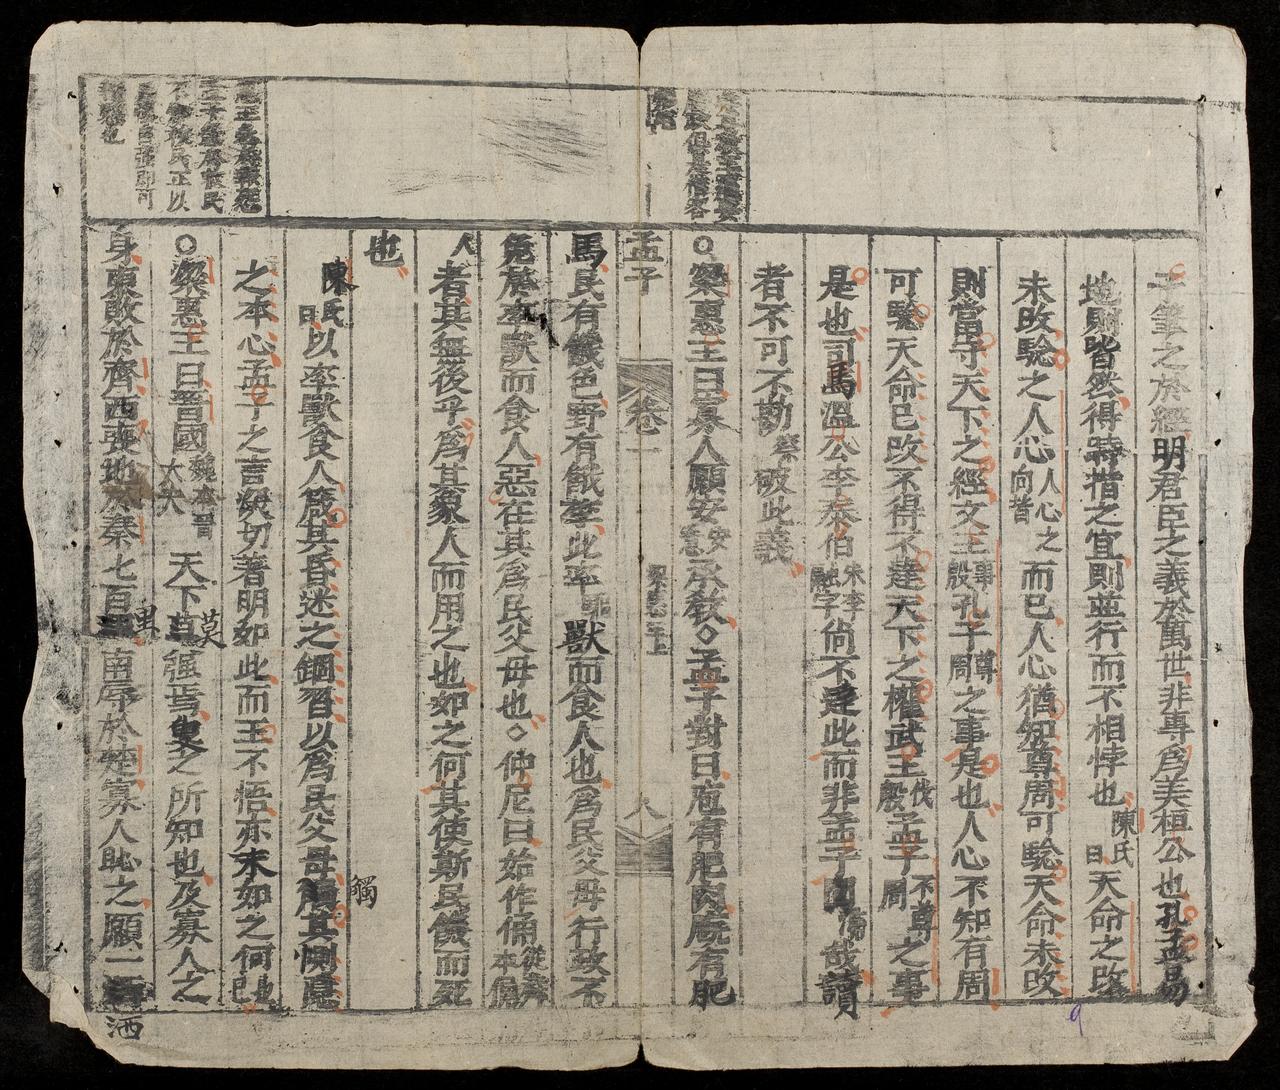 子筆之於經明君臣之義於萬世非專爲美桓公也孔孟易
地則皆然得時措之宜則並行而不相悖也陳氏曰天命之改
未改驗之人心人心之向背而已人心猶知尊周可驗天命未改
則當守天下之經文王事殷孔子尊周之事是也人心不知有周
可驗天命已改不得不達天下之權武王伐殷孟子不尊周之事
是也司馬溫公李泰伯宋李覯字尙不達此而非孟子哉讀
者不可不勘破此義
○梁惠王曰寡人願安承敎○孟子對曰庖有肥肉廐有肥
孟子 卷一 梁惠王上 八
馬民有饑色野有餓莩此率獸而食人也爲民父母行政不
免於率獸而食人惡在其爲民父母也○仲尼曰始作俑從葬木偶
人者其無後乎爲其象人而用之也如之何其使斯民饑而死
也
陳氏曰以率獸食人箴其昏迷之錮習以爲民父母觸其惻隱
之本心孟子之言深切著明如此而王不悟亦末如之何也已
○梁惠王曰晉國魏本晉大夫天下莫強焉叟之所知也及寡人之
身東敗於齊西喪地於秦七百里南辱於楚寡人恥之願一洒
9